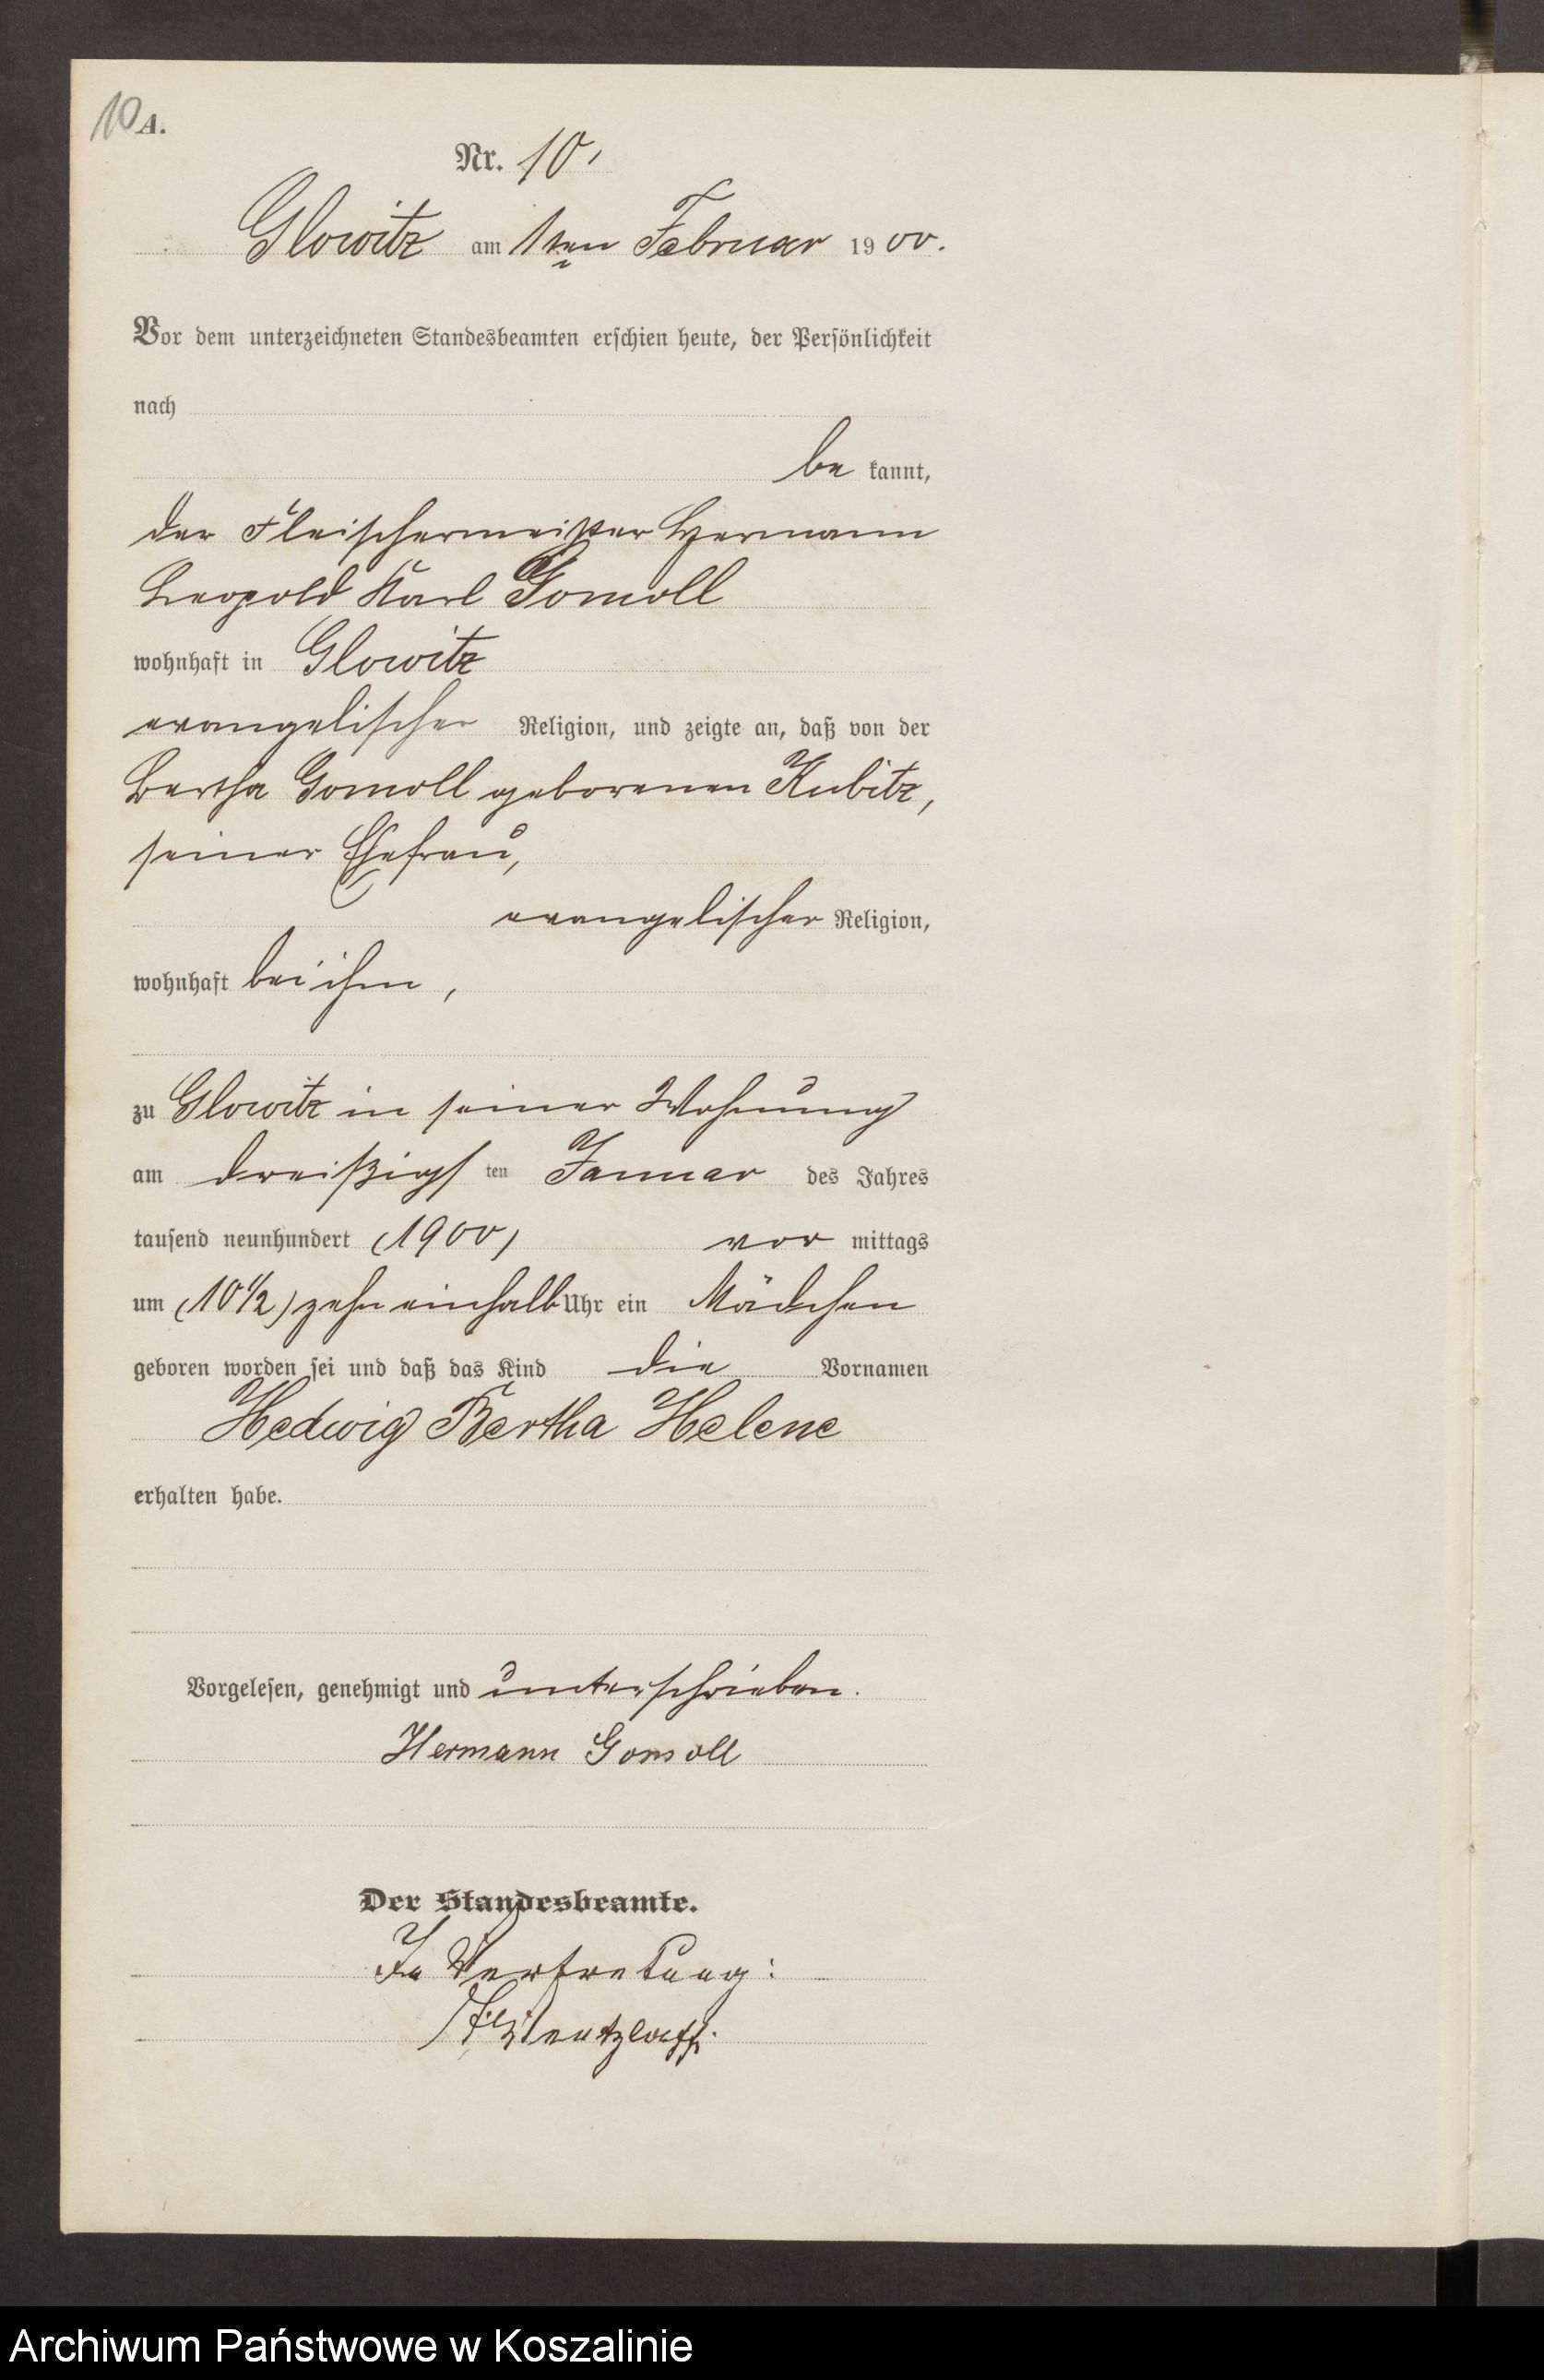 10 A.
Nr. 10.
Glowitz am 1ten Februar 1900.
Vor dem unterzeichneten Standesbeamten erschien heute, der Persönlichkeit
nach
be kannt,
der Fleischermeister Hermann
Leopold Karl Gomoll
wohnhaft in Glowitz
evangelischer Religion, und zeigte an, daß von der
Bertha Gomoll geborenen Kubitz,
seiner Ehefrau,
evangelischer Religion,
wohnhaft bei ihm,
zu Glowitz in seiner Wohnung
am dreißigs ten Januar des Jahres
tausend neunhundert (1900) vor mittags
um (10 1/2) zehn einhalb Uhr ein Mädchen
geboren worden sei und daß das Kind die Vornamen
Hedwig Bertha Helene
erhalten habe.
Vorgelesen, genehmigt und unterschrieben.
Hermann Gomoll
Der Standesbeamte.
In Vertretung:
Archiwum Państwowe w Koszalinie